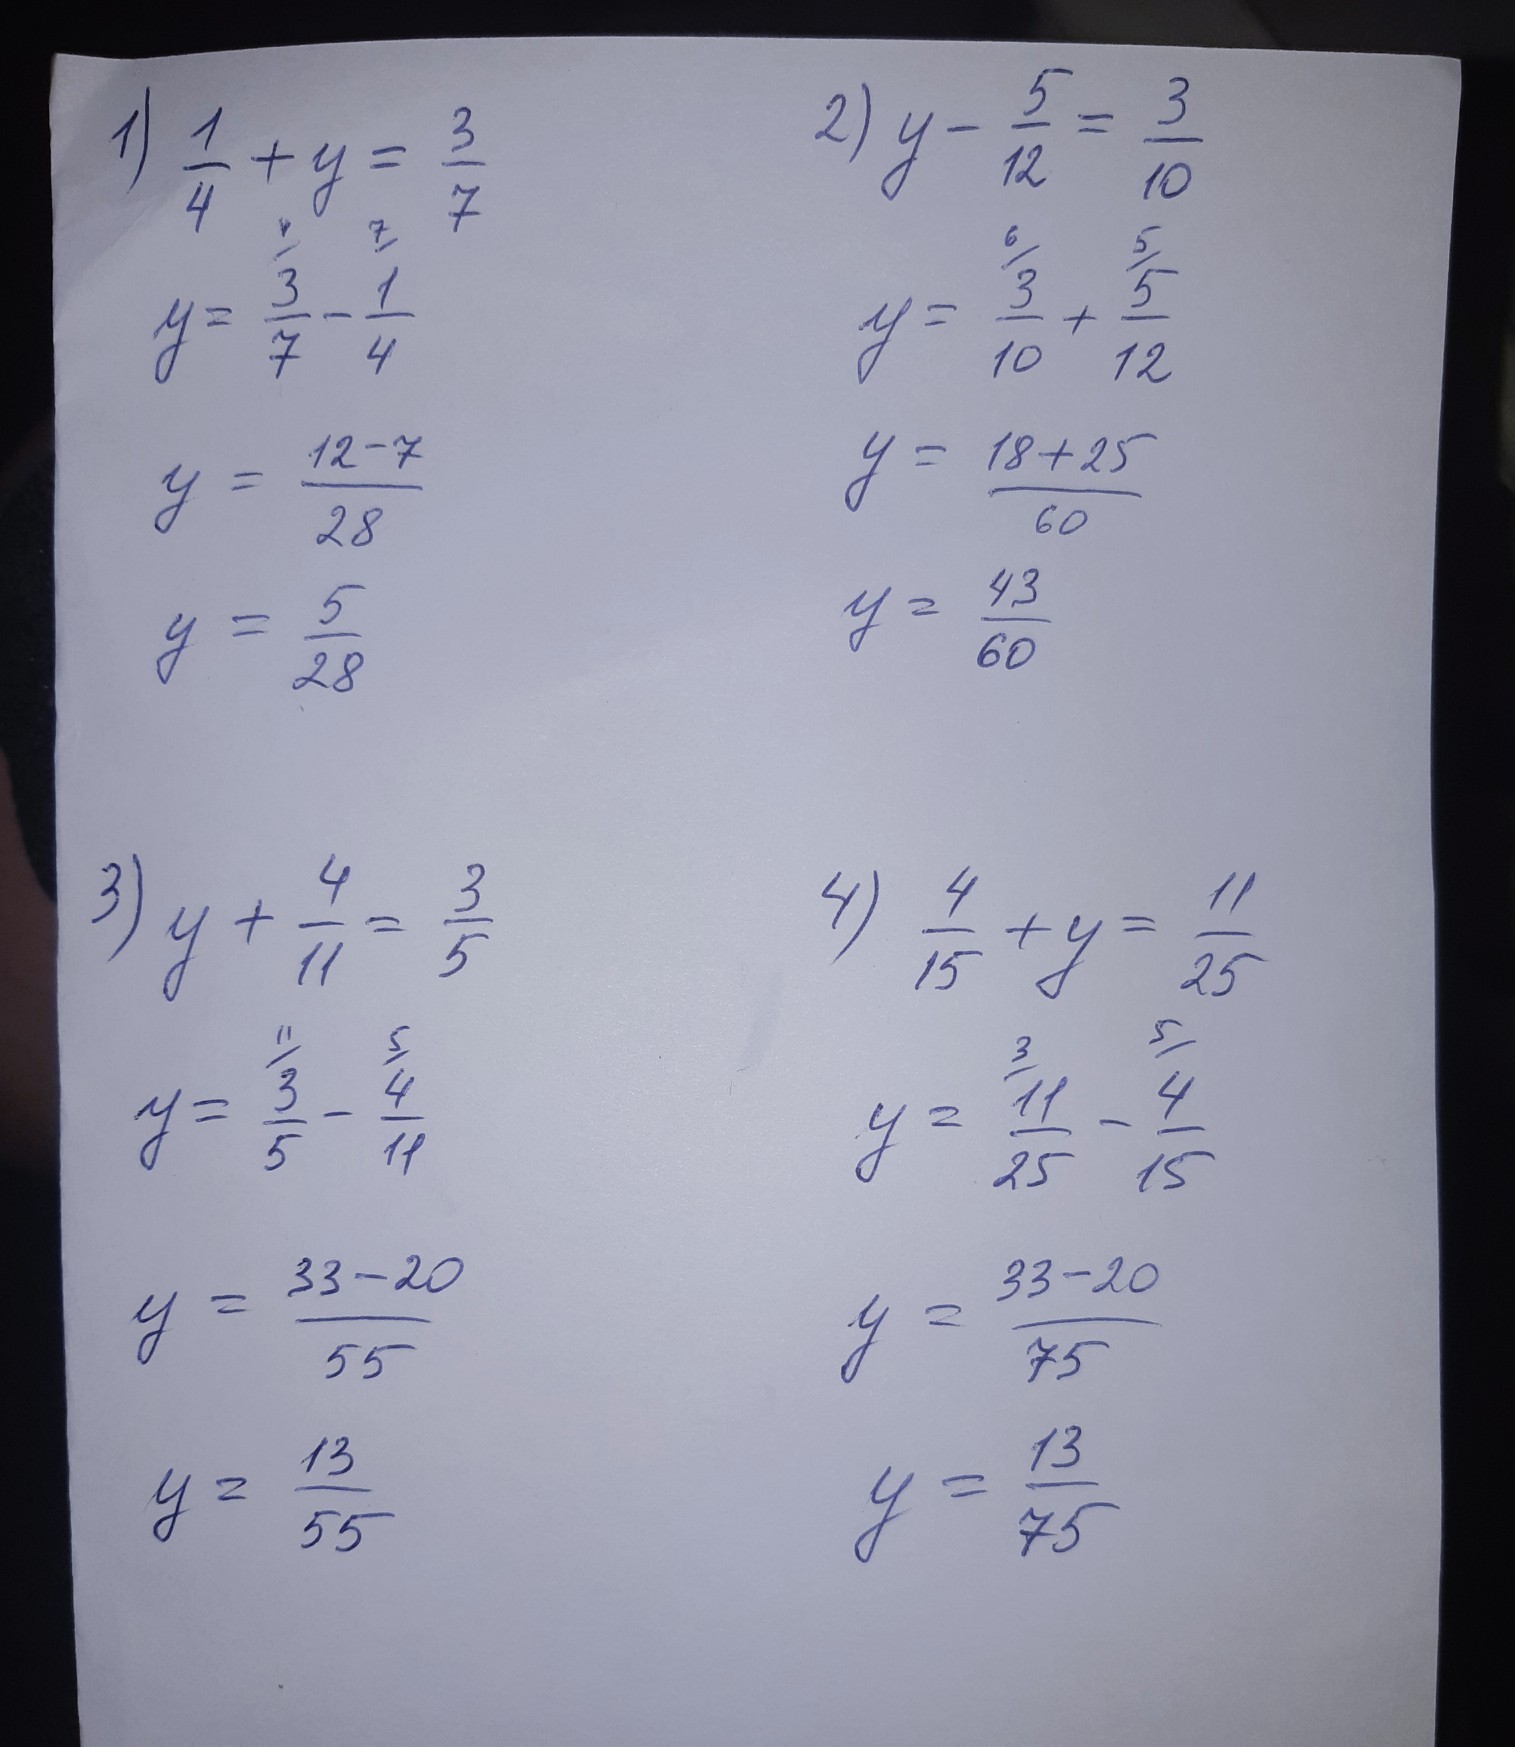 1) 1/4 + y = 3/7
4/ 7/
y = 3/7 - 1/4
y = (12-7)/28
y = 5/28
2) y - 5/12 = 3/10
6/ 5/
y = 3/10 + 5/12
y = (18+25)/60
y = 43/60
3) y + 4/11 = 3/5
11/ 5/
y = 3/5 - 4/11
y = (33-20)/55
y = 13/55
4) 4/15 + y = 11/25
3/ 5/
y = 11/25 - 4/15
y = (33-20)/75
y = 13/75